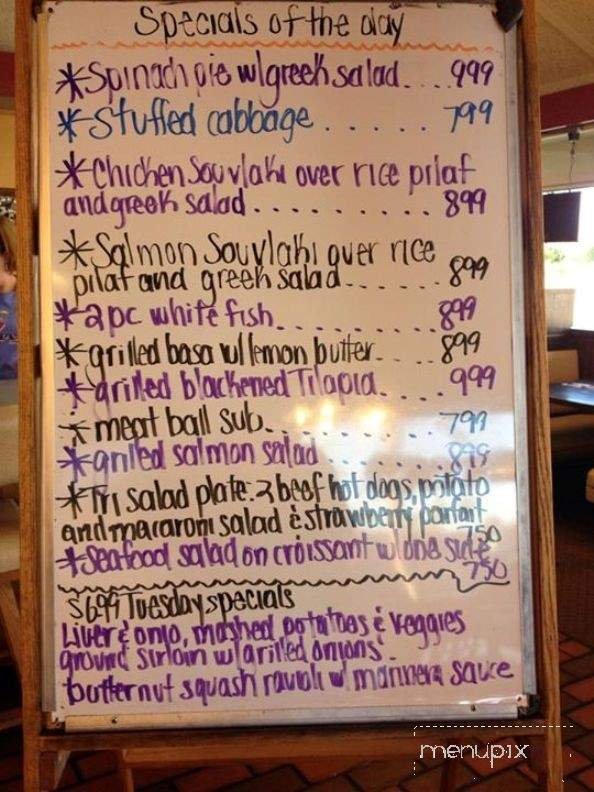 Specials of the day
*Spinach pie w/greek salad....999
*Stuffed cabbage......799
*Chicken Souvlaki over rice pilaf
and greek salad..........899
*Salmon Souvlaki over rice
pilaf and greek salad......899
*2pc white fish..........899
*grilled basa w/lemon butter....899
*grilled blackened Tilapia.....999
*meat ball sub..........799
*grilled salmon salad.......899
*Tri salad plate: 2 beef hot dogs, potato
and macaroni salad & strawberry parfait
750
*Seafood salad on croissant w/one side
750
$6.99 Tuesday specials
Liver & onio, mashed potatoes & veggies
ground sirloin w/grilled onions
butternut squash ravioli w/ marinera sauce
menupix